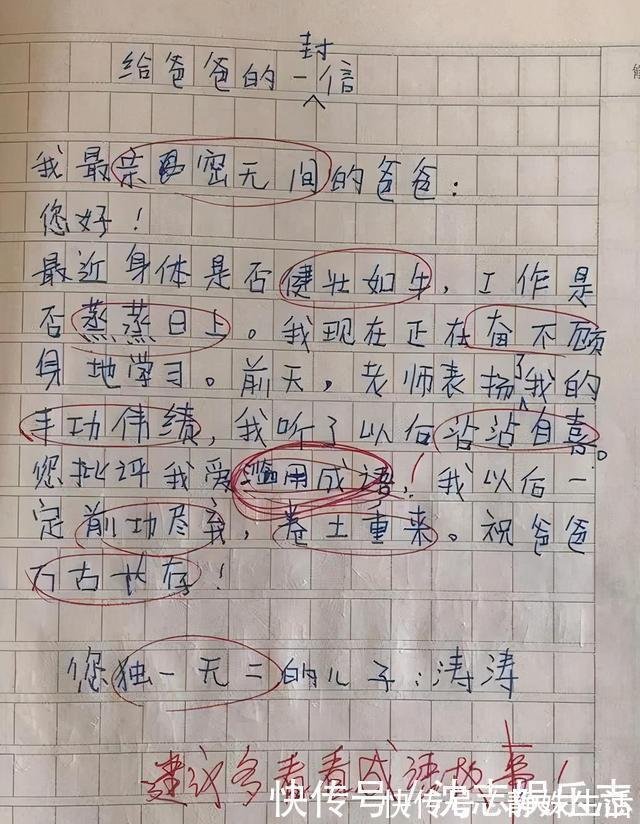 给爸爸的一封信
我最亲密无间的爸爸：
您好！
最近身体是否健壮如牛，工作是
否蒸蒸日上。我现在正在奋不顾
身地学习。前天，老师表扬了我的
丰功伟绩，我听了以后沾沾自喜。
您批评我爱滥用成语！我以后一
定前功尽弃，卷土重来。祝爸爸
万古长存！
您独一无二的儿子：涛涛
建议多看看成语故事！
快传号/